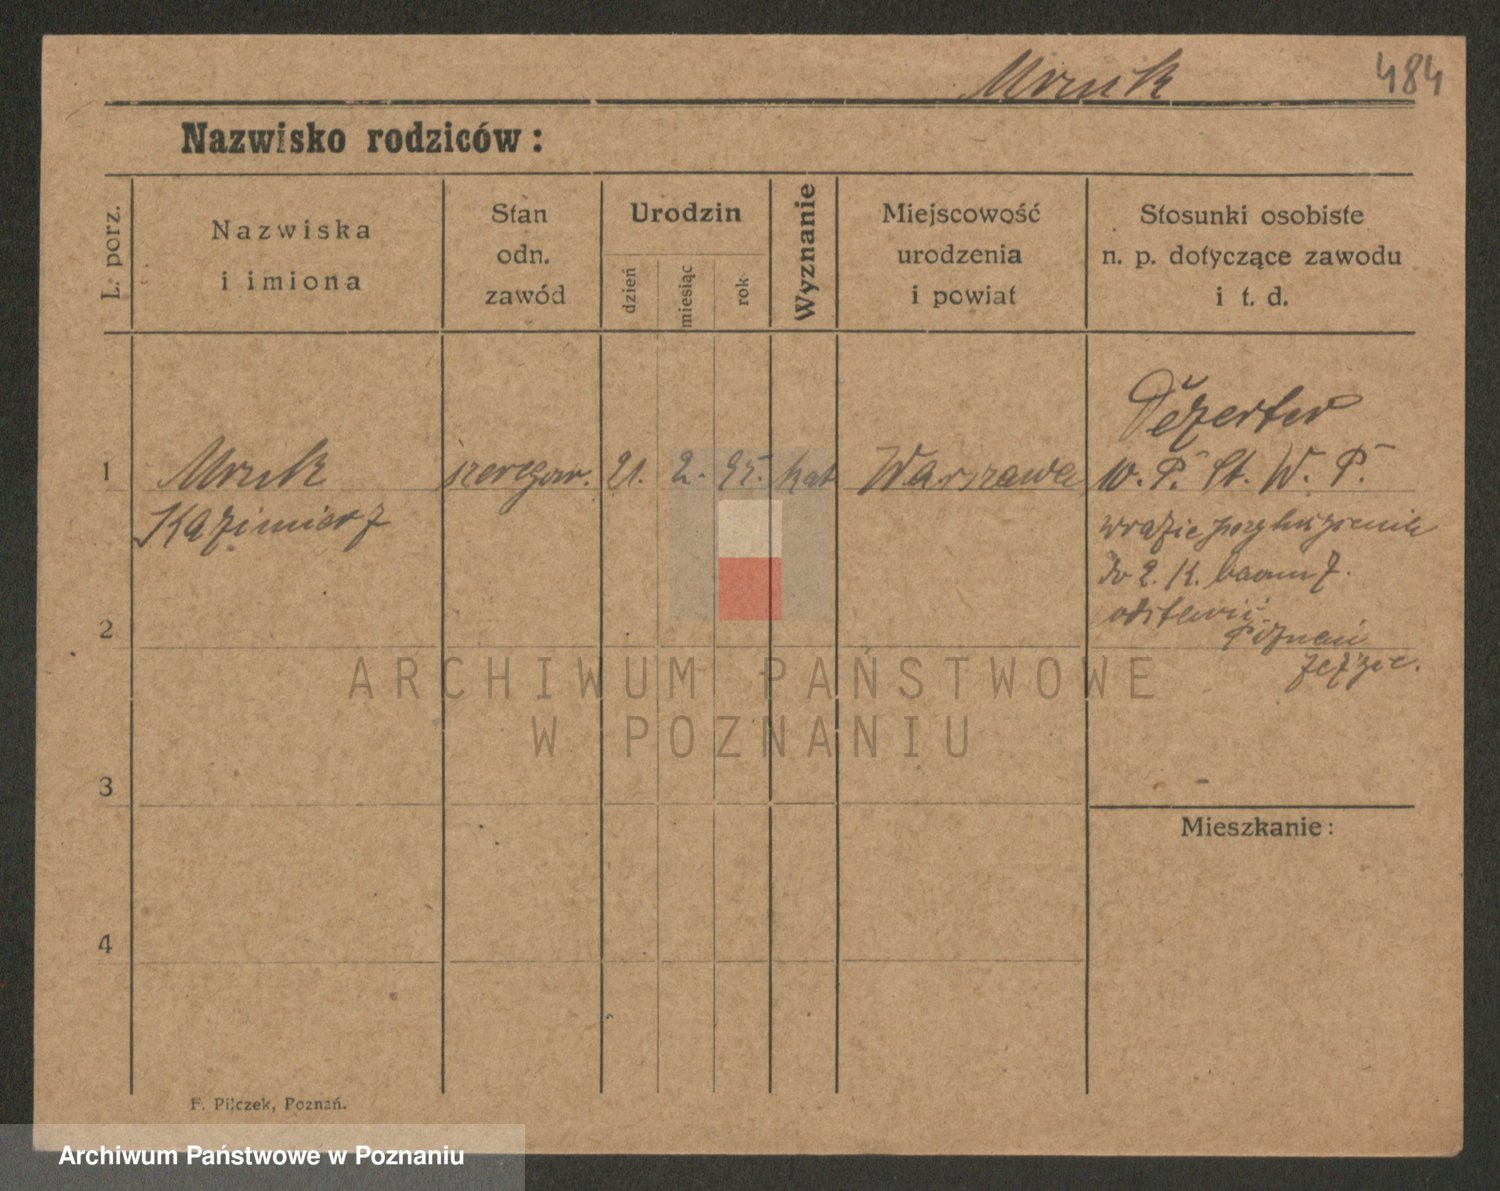 Mruk
484
Nazwisko rodziców:
L. porz.
Nazwiska
i imiona
Stan
odn.
zawód
Urodzin
dzień
miesiąc
rok
Wyznanie
Miejscowość
urodzenia
i powiat
Stosunki osobiste
n. p. dotyczące zawodu
i t. d.
Dezerter
1
Mruk
szeregow. 21. 2. 95. kat Warszawa
Kazimierz
W. P. St. W. P.
w razie
do 2. K.
odstawić
Poznań
Jeżyce.
2
3
4
Mieszkanie:
F. Pilczek, Poznań.
ARCHIWUM PAŃSTWOWE
W POZNANIU
Archiwum Państwowe w Poznaniu